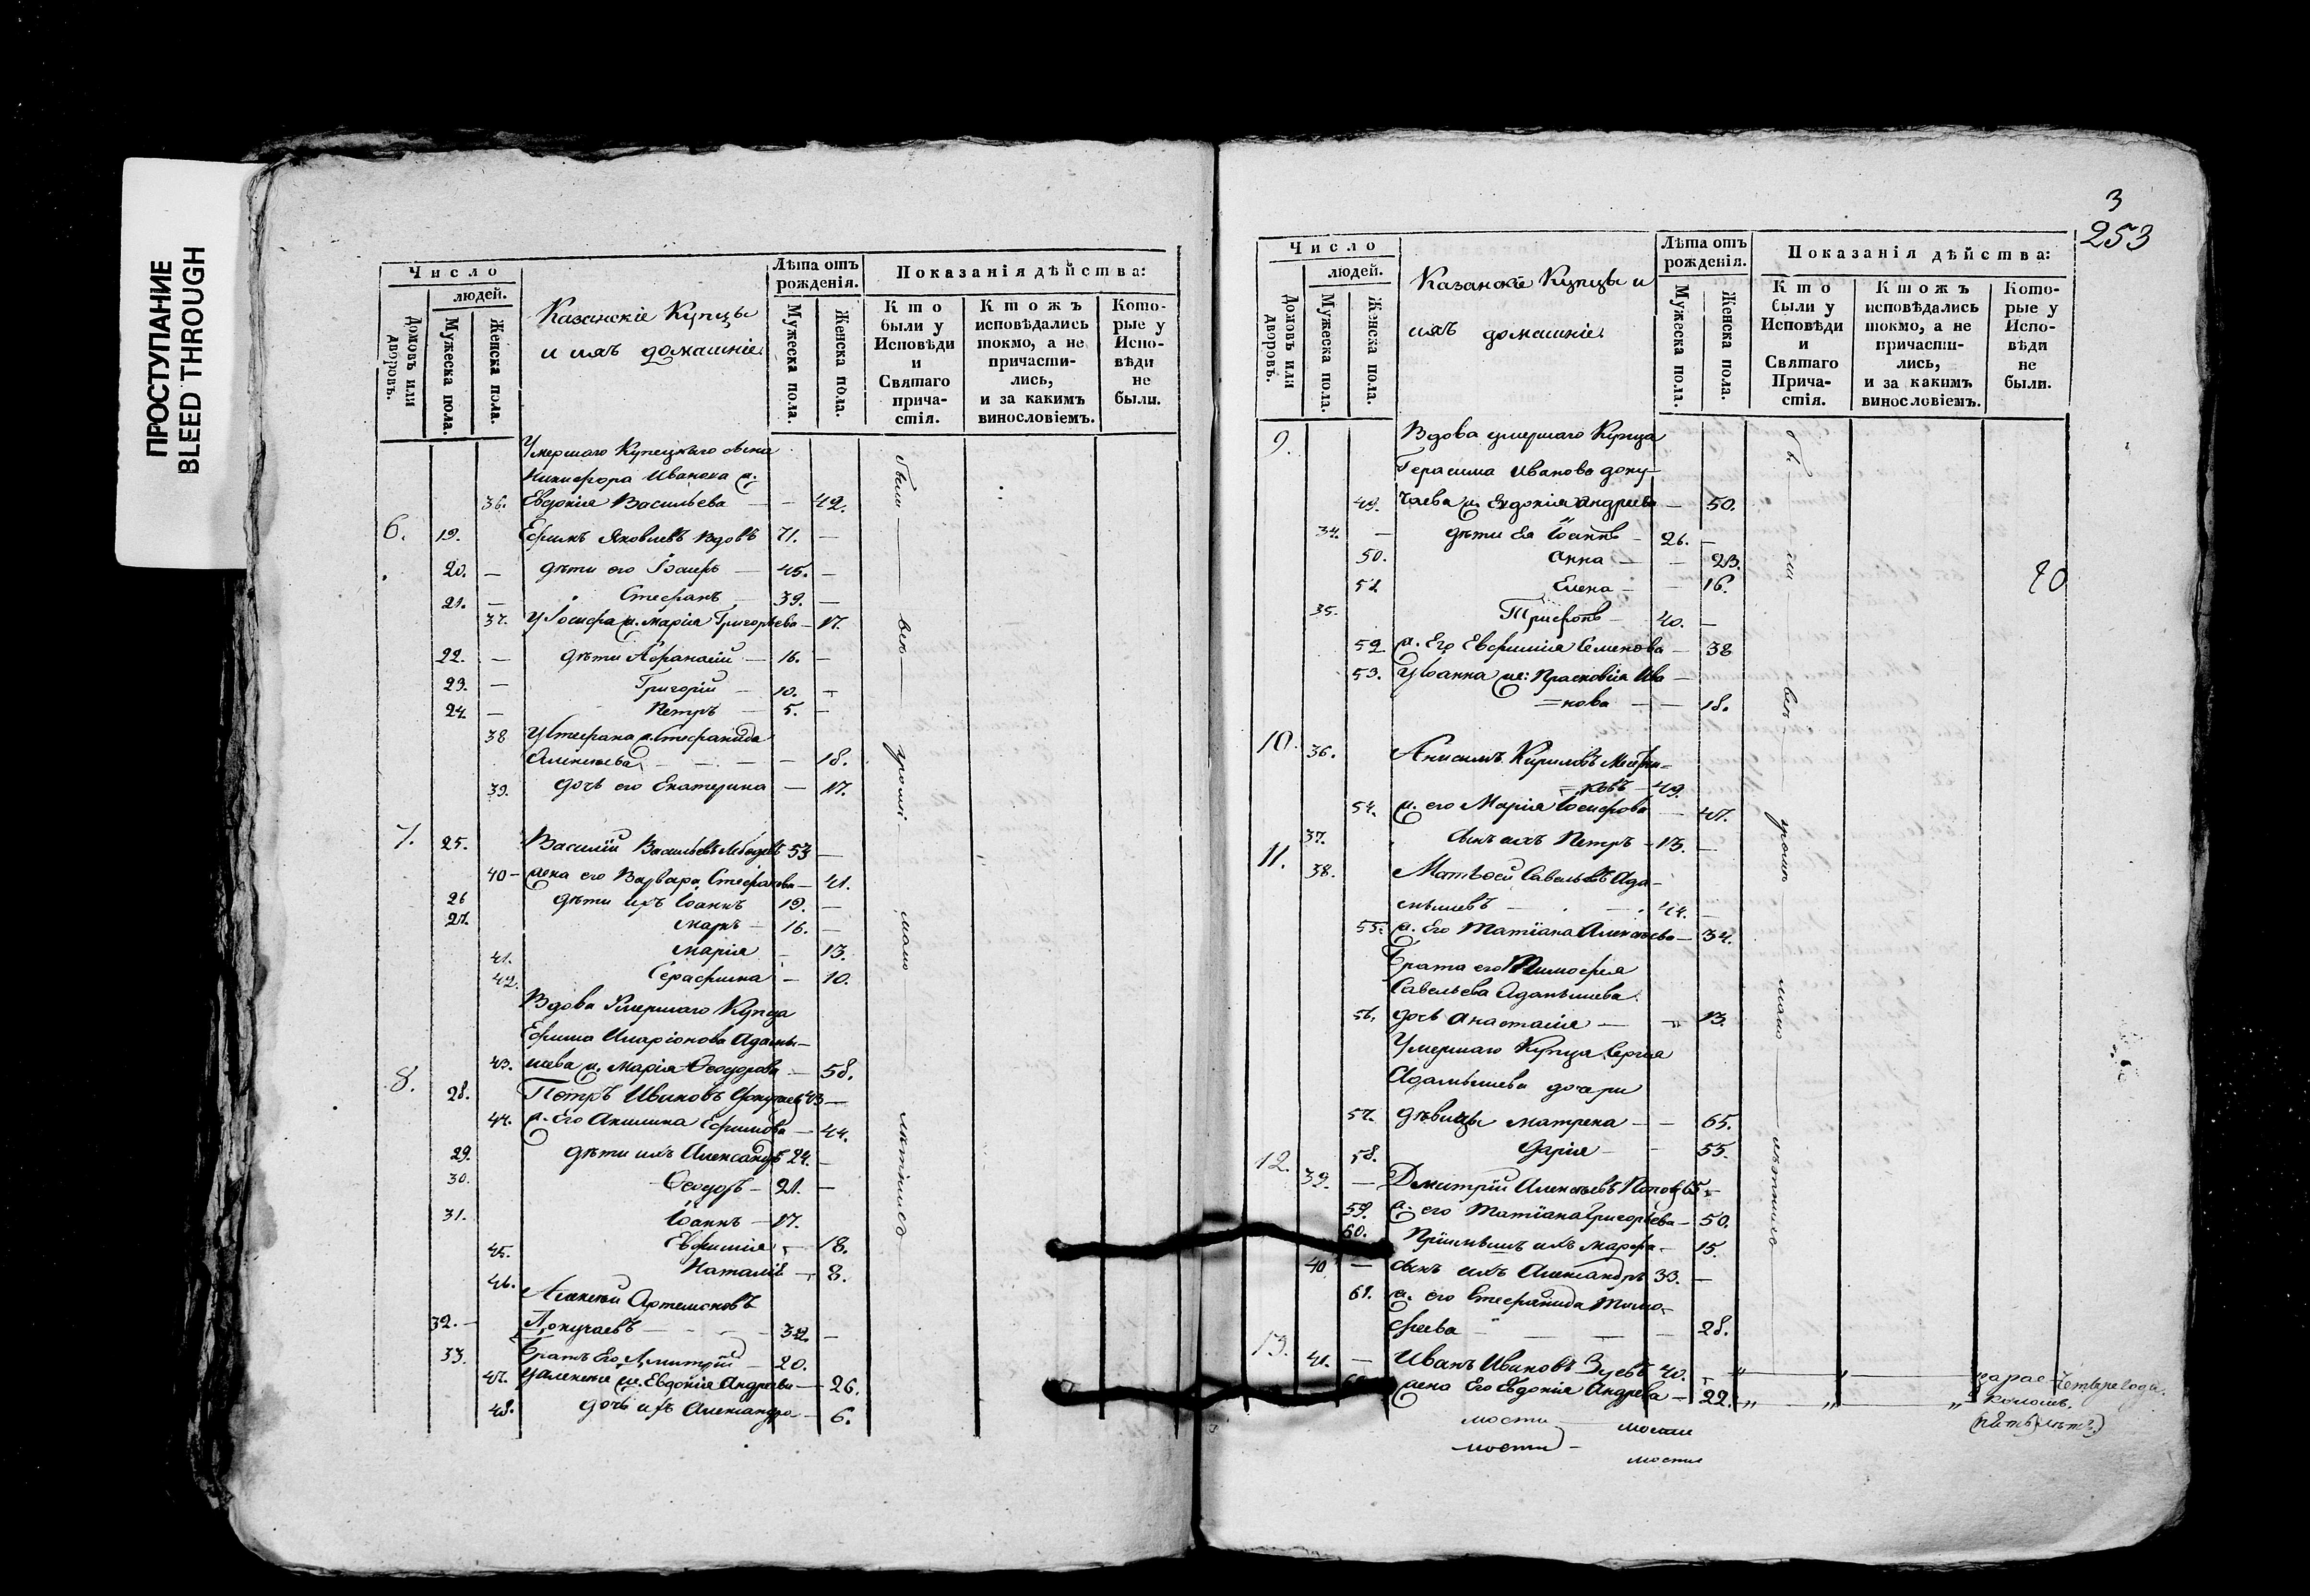 ПРОСТУПАНИЕ
BLEED THROUGH
Число
людей.
Домовъ или дворовъ.
Мужеска пола.
Женска пола.
Казанскіе Купцы
и ихъ домашніе.
Лѣта отъ рожденія.
Мужеска пола.
Женска пола.
Показанія дѣйства:
Кто были у Исповѣди и Святаго причастія.
Ктожъ исповѣдались токмо, а не причастились, и за какимъ винословіемъ.
Которые у Исповѣди не были.
Умершаго Купецкаго сына
Никифора Иванова ж.
36. Евдокія Васильева — — 42.
6. 19. Ефимъ Яковлевъ вдовъ 71. —
20. — дѣти его Іосифъ — 45. —
21. — Стефанъ 39. —
37. У Іосифа ж. Марія Григорьева — 17.
22. — дѣти Афанасій — 16. —
23. — Григорій — 10. —
24. — Петръ — 5. —
38 У Стефана ж. Стефанида
Алексѣева — — — — 18.
39. дочь его Екатерина — 17.
7. 25. Василій Васильевъ Лебедевъ 53 —
40 — жена его Варвара Стефанова — 41.
26 дѣти ихъ Іоаннъ 19. —
27. Маркъ — 16. —
41. Марія — 13.
42. Серафима — 10.
Вдова Умершаго Купца
Ефима Иларіонова Адамы-
43. шева ж. Марія Ѳеодорова — 58.
8. 28. Петръ Ивановъ Докучаевъ 43 —
44. ж. Его Акилина Ефимова — 44.
29. дѣти ихъ Александръ 24. —
30. Ѳеодоръ — 21. —
31. Іоаннъ — 17.
45. Евфимія — 18.
46. Наталія — 8.
Алексѣй Артемоновъ
32. — Докучаевъ — — — 32. —
33. Братъ Его Дмитрій — 20.
47. У Алексѣя ж. Евдокія Андреева — 26.
48. дочь ихъ Александра — 6.
были — всѣ — уроми — мамо — лѣтніихъ
3
253
Число
людей.
Домовъ или дворовъ.
Мужеска пола.
Женска пола.
Казанскіе Купцы и
ихъ домашніе.
Лѣта отъ рожденія.
Мужеска пола.
Женска пола.
Показанія дѣйства:
Кто были у Исповѣди и Святаго Причастія.
Ктожъ исповѣдались токмо, а не причастились, и за какимъ винословіемъ.
Которые у Исповѣди не были.
9. Вдова умершаго Купца
Герасима Иванова доку-
49. чаева ж. Евдокія Андреева — 50.
34. — дѣти Ея Іоаннъ — 26. —
50. Анна — — 23.
51. Елена — — 16.
35. Трифонъ — 40. —
52 ж. Его Евфимія Семенова — 38
53. У Іоанна ж: Прасковія Ива —
=нова — — 18.
10. 36. Анисимъ Кириловъ
=ковъ — 49.
54. ж. его Марія Іосифова — 47.
37. сынъ ихъ Петръ — 13. —
11. 38. Матѳей Савельевъ Ада-
мышевъ — . — . 44. —
55. ж. Его Татіана Алексѣева — 34.
Брата его Тимофея
Савельева Адамышева.
56. дочь Анастасія — — 13.
Умершаго Купца Сергія
Адамышева дочери
57. дѣвицы Матрена — — 65.
58. Дарія — — 55.
12. 39. — Дмитрій Алексѣевъ Поповъ 65 —
59. ж. его Татіана Григорьева — 50.
60. Пріемышъ ихъ Марфа — 15.
40 — сынъ ихъ Александръ 33. —
61. ж. его Стефанида Тимо-
фѣева — — — 28.
13. 41. — Иванъ Ивановъ Зуевъ 40. —
жена Его Евдокія Андреева — 22.
20
мости
мости
мости
мости